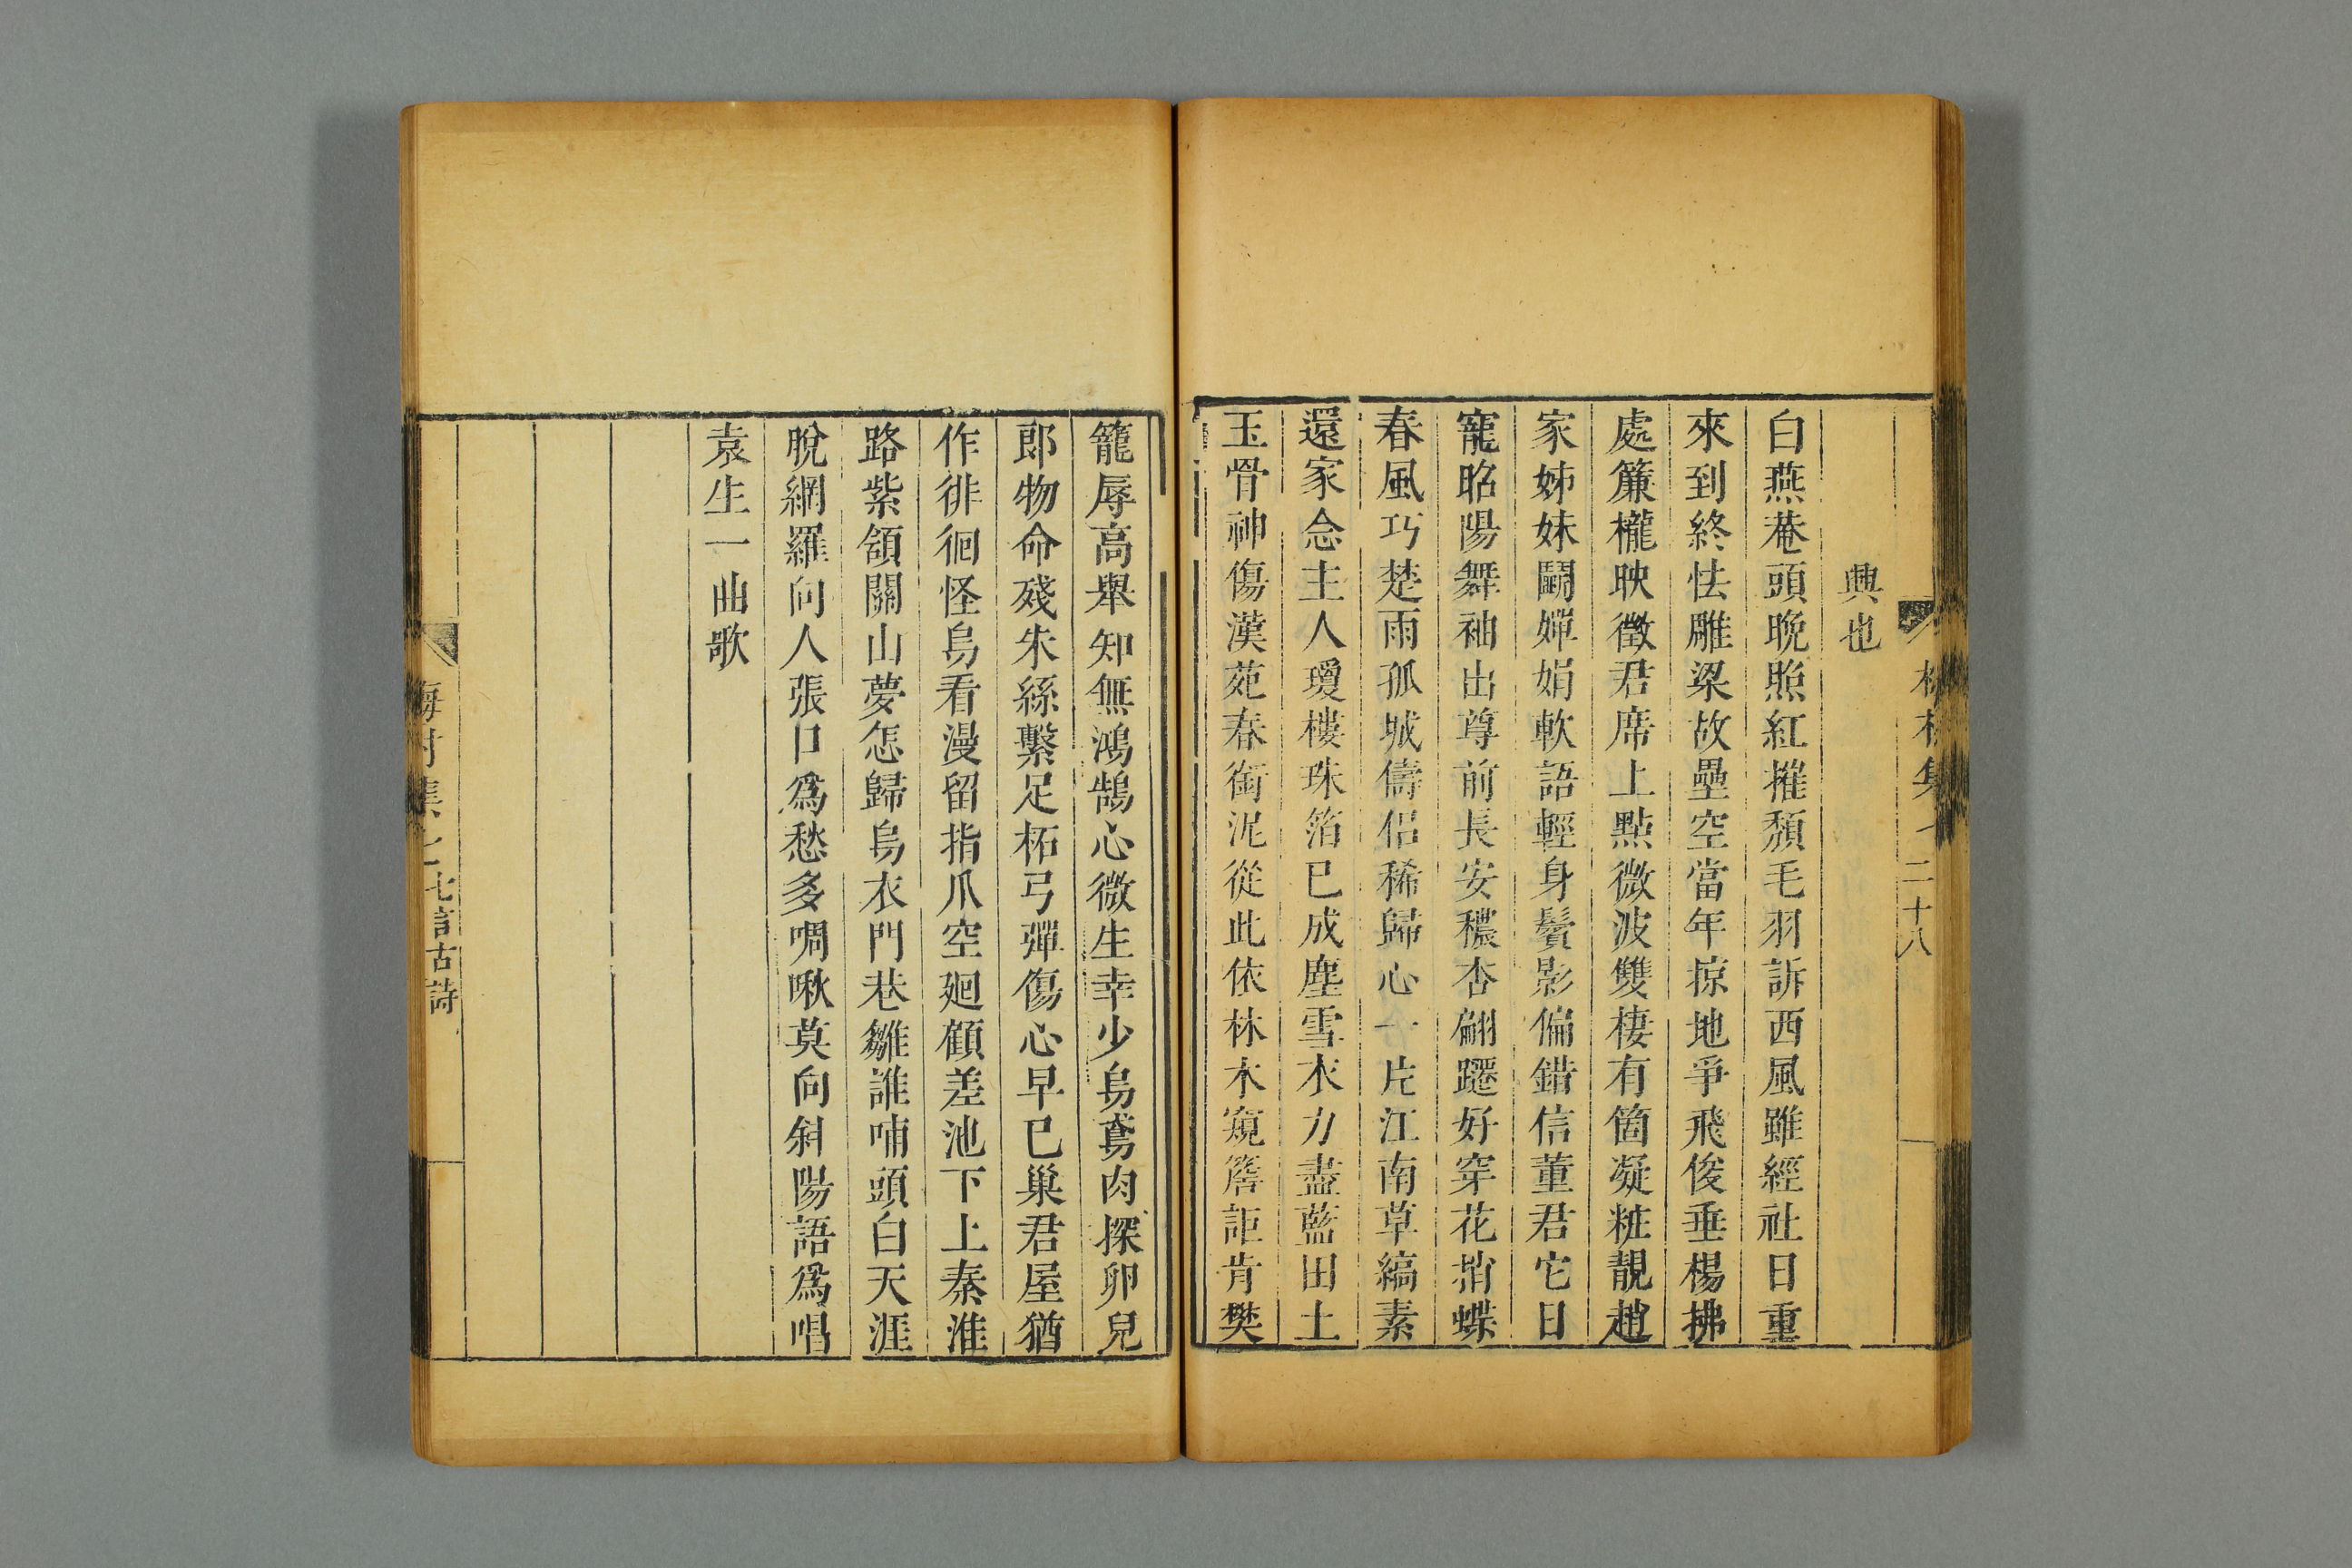 興也
白燕菴頭晚照紅摧頹毛羽訴西風雖經社日重
來到終怯雕梁故壘空當年掠地爭飛俊垂楊拂
處簾櫳映徵君席上點微波雙棲有箇凝粧靚趙
家姊妹鬭嬋娟軟語輕身鬢影偏錯信董君它日
寵昭陽舞袖出尊前長安穠杏翩躚好穿花捎蝶
春風巧楚雨孤城儔侶稀歸心一片江南草縞素
還家念主人瓊樓珠箔已成塵雪衣力盡藍田土
玉骨神傷漢苑春銜泥從此依林木窺簷詎肯樊
二十八
籠辱高舉知無鴻鵠心微生幸少烏鳶肉探卵兒
郎物命殘朱絲繫足柘弓彈傷心早已巢君屋猶
作徘徊怪鳥看漫留指爪空廻顧差池下上秦淮
路紫頷關山夢怎歸烏衣門巷雛誰哺頭白天涯
脫網羅向人張口爲愁多啁啾莫向斜陽語爲唱
袁生一曲歌
七言古詩